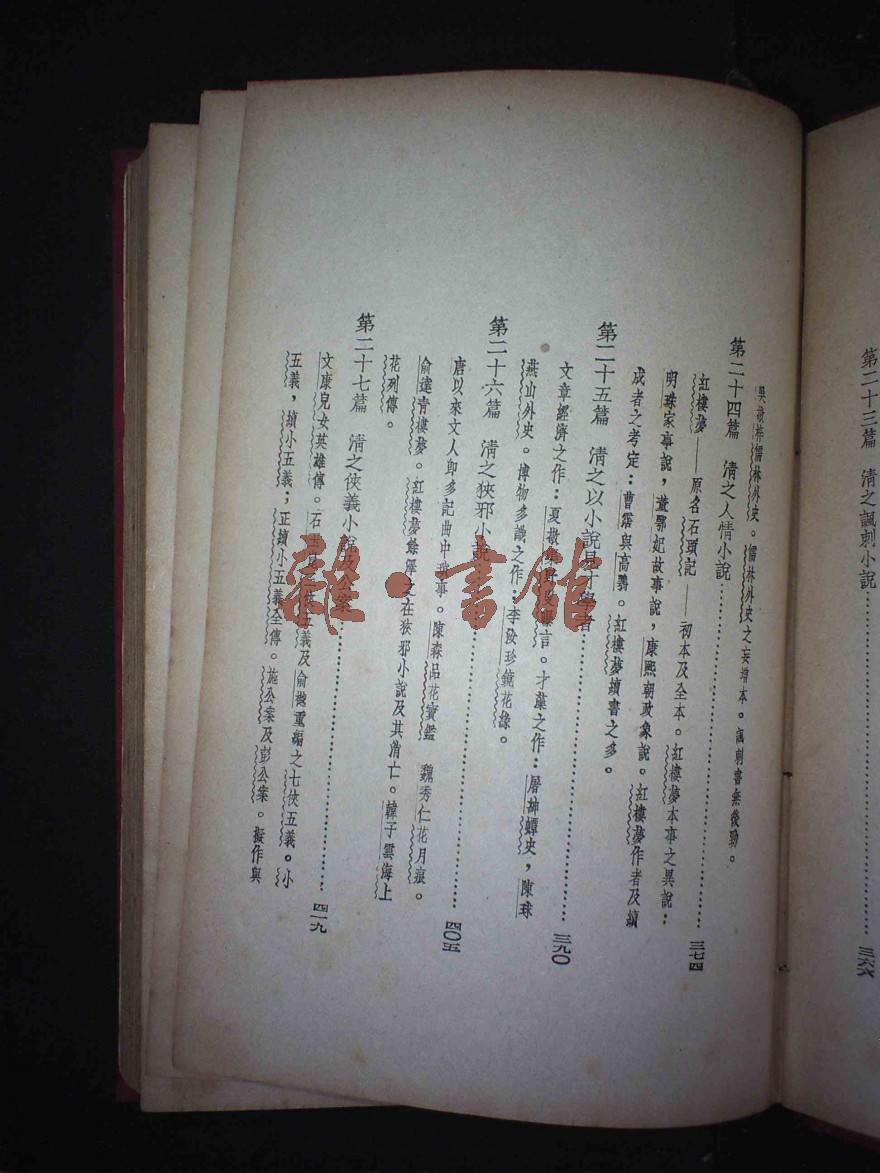 第二十三篇 清之諷刺小說……三六六
吳敬梓儒林外史。儒林外史之妄增本。諷刺書無後勁。
第二十四篇 清之人情小說……三七四
紅樓夢——原名石頭記——初本及全本。紅樓夢本事之異說：
明珠家事說，董鄂妃故事說，康熙朝政象說。紅樓夢作者及續
成者之考定：曹霑與高鶚。紅樓夢續書之多。
第二十五篇 清之以小說見才學者……三九〇
文章經濟之作：夏敬渠野叟曝言。才藻之作：屠紳蟫史，陳球
燕山外史。博物多識之作：李汝珍鏡花緣。
第二十六篇 清之狹邪小說……四〇五
唐以來文人即多記曲中瑣事。陳森品花寶鑑 魏秀仁花月痕。
俞達青樓夢。紅樓夢餘澤之在狹邪小說及其消亡。韓子雲海上
花列傳。
第二十七篇 清之俠義小說及公案……四一九
文康兒女英雄傳。石玉崑三俠五義及俞樾重編之七俠五義。小
五義，續小五義；正續小五義全傳。施公案及彭公案。擬作與
雜·書館